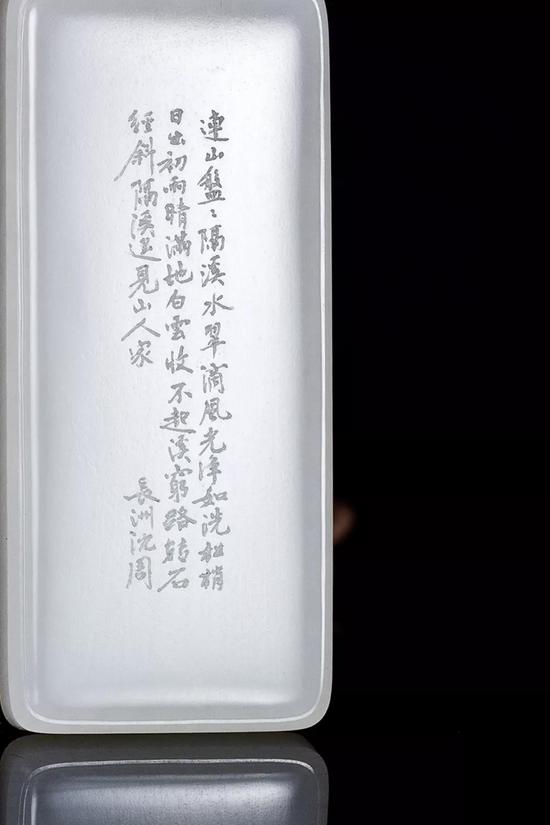 連山盤〻隔溪水翠滴風光淨如洗松梢
日出初雨晴滿地白雲收不起溪窮路轉石
經斜隔溪遥見山人家
長洲沈周